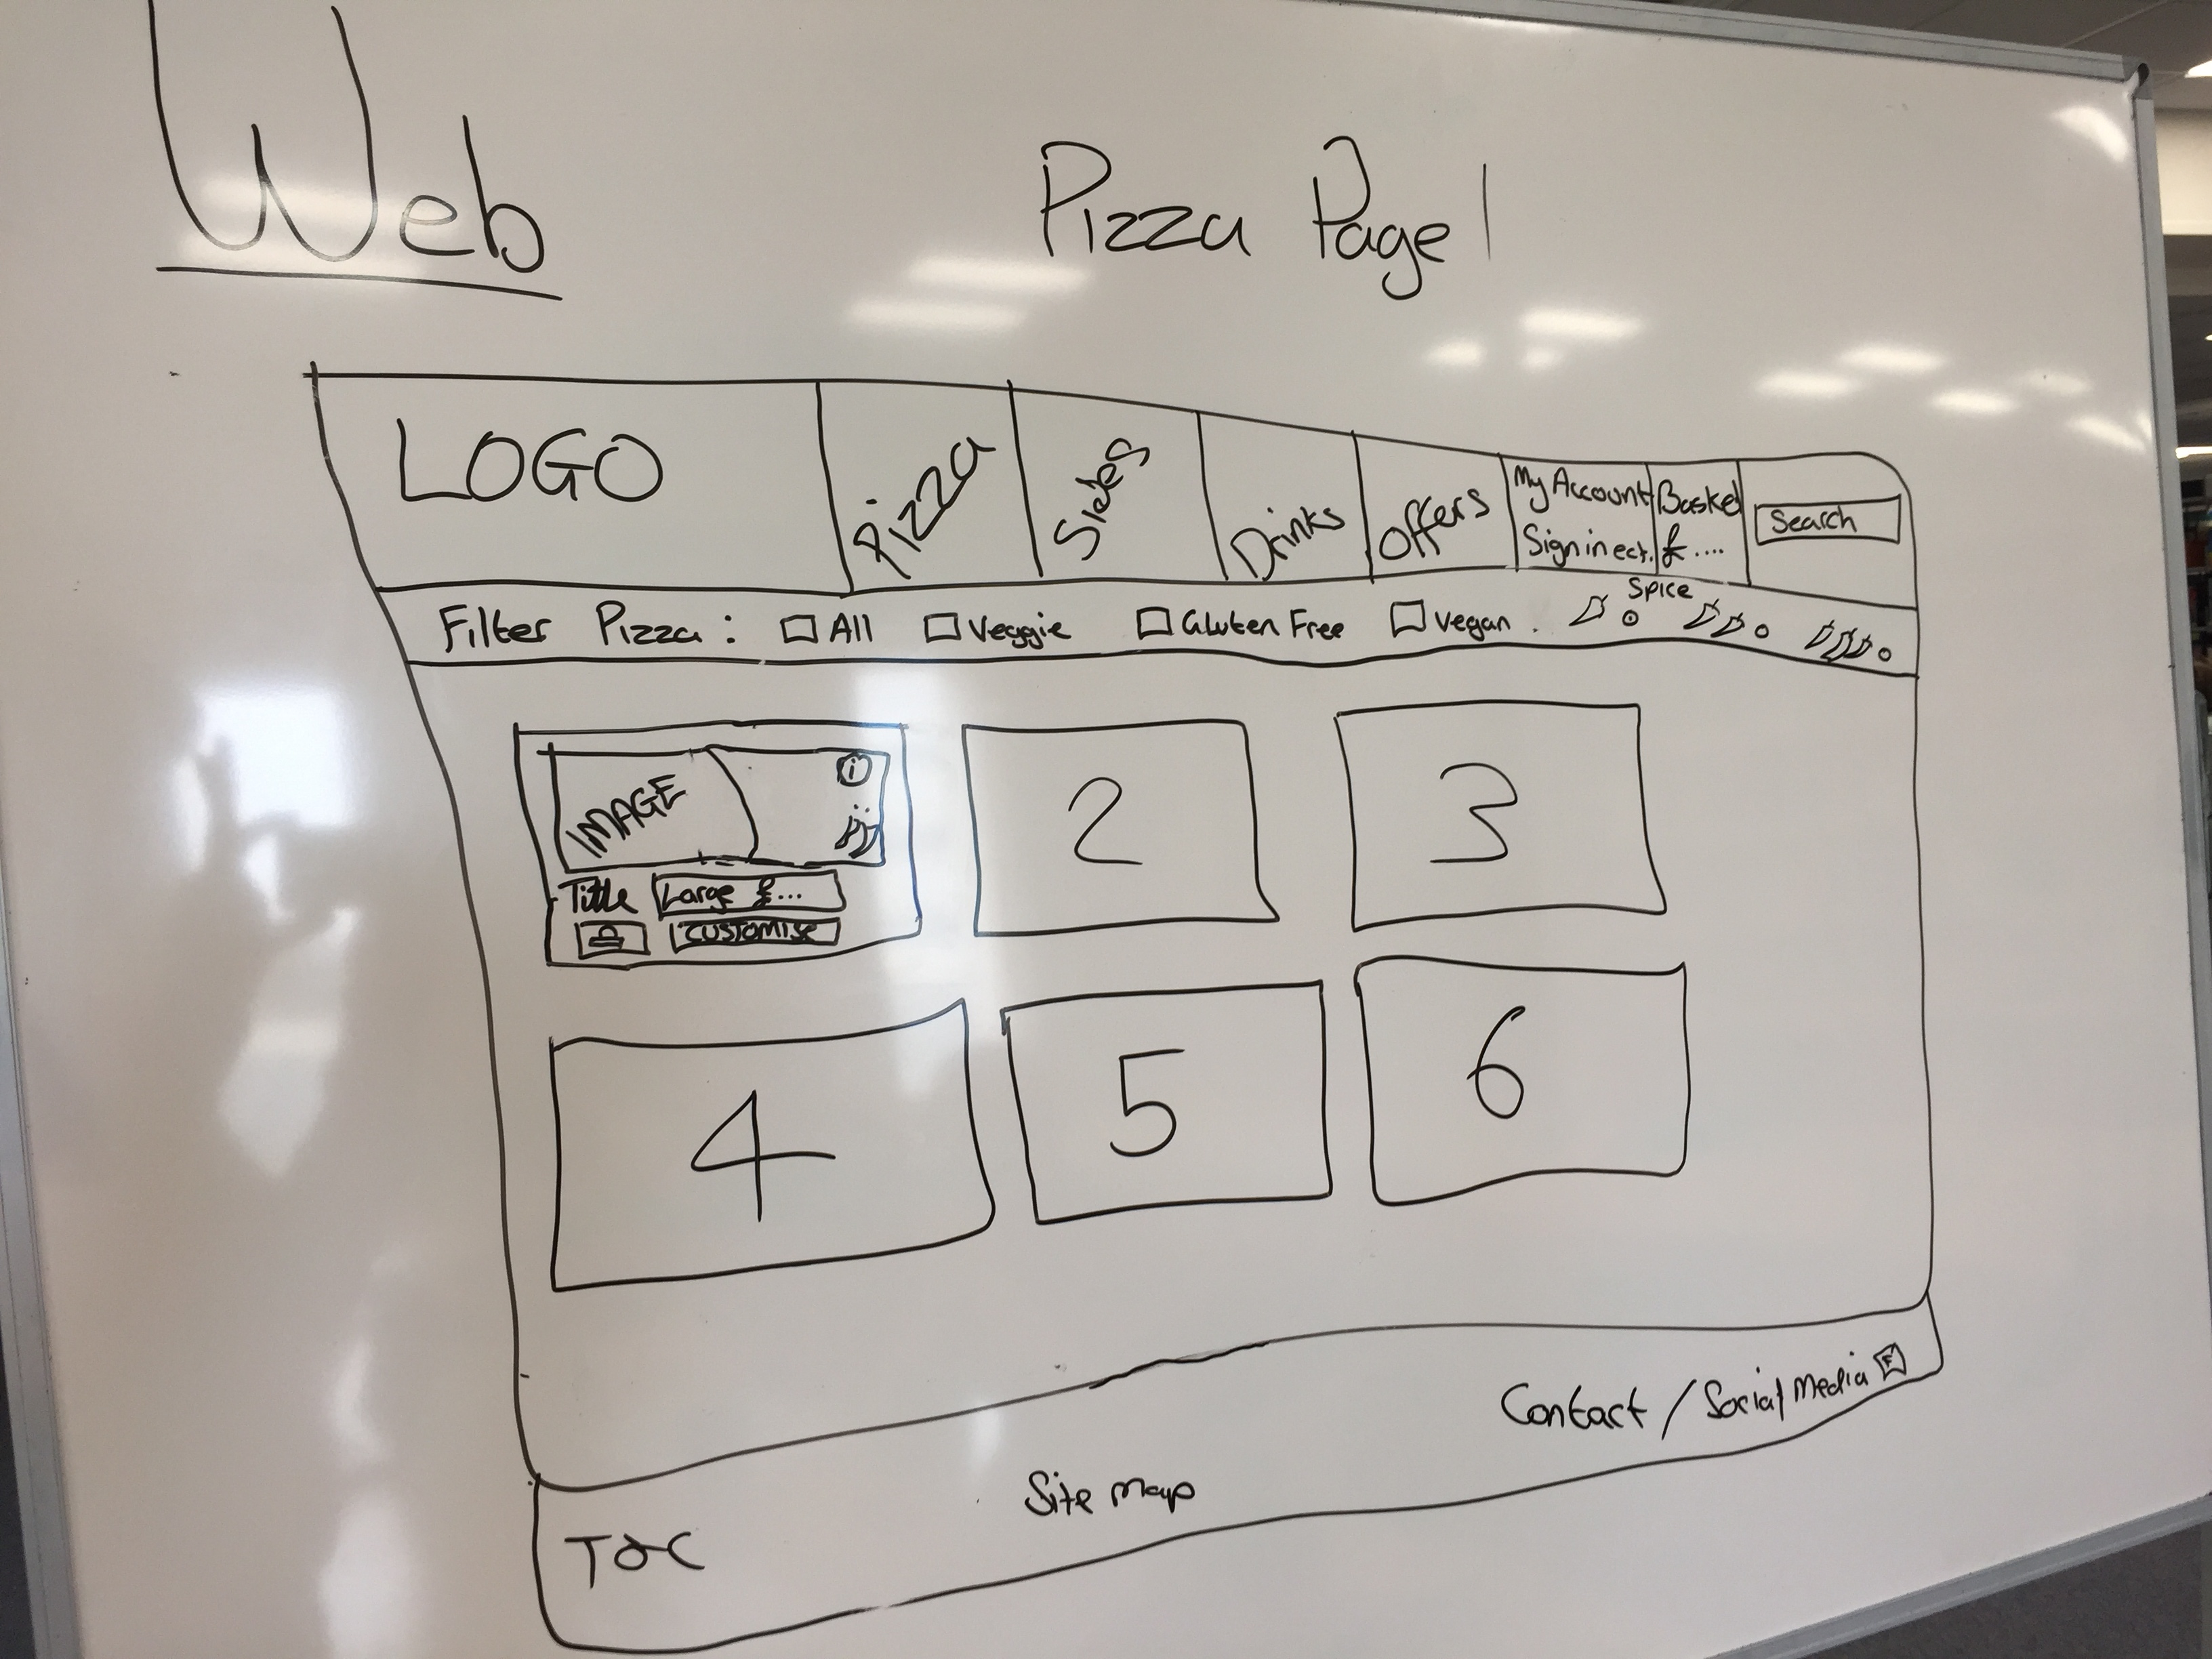 Web
Pizza Page 1
LOGO
Pizza
Sides
Drinks
Offers
My Account
Sign in ect.
Basket
£ ....
Search
Filter Pizza : All Veggie Gluten Free Vegan .
Spice
IMAGE
i
Tittle
Large £...
CUSTOMISE
2
3
4
5
6
Contact / Social Media F
Site Map
T&C